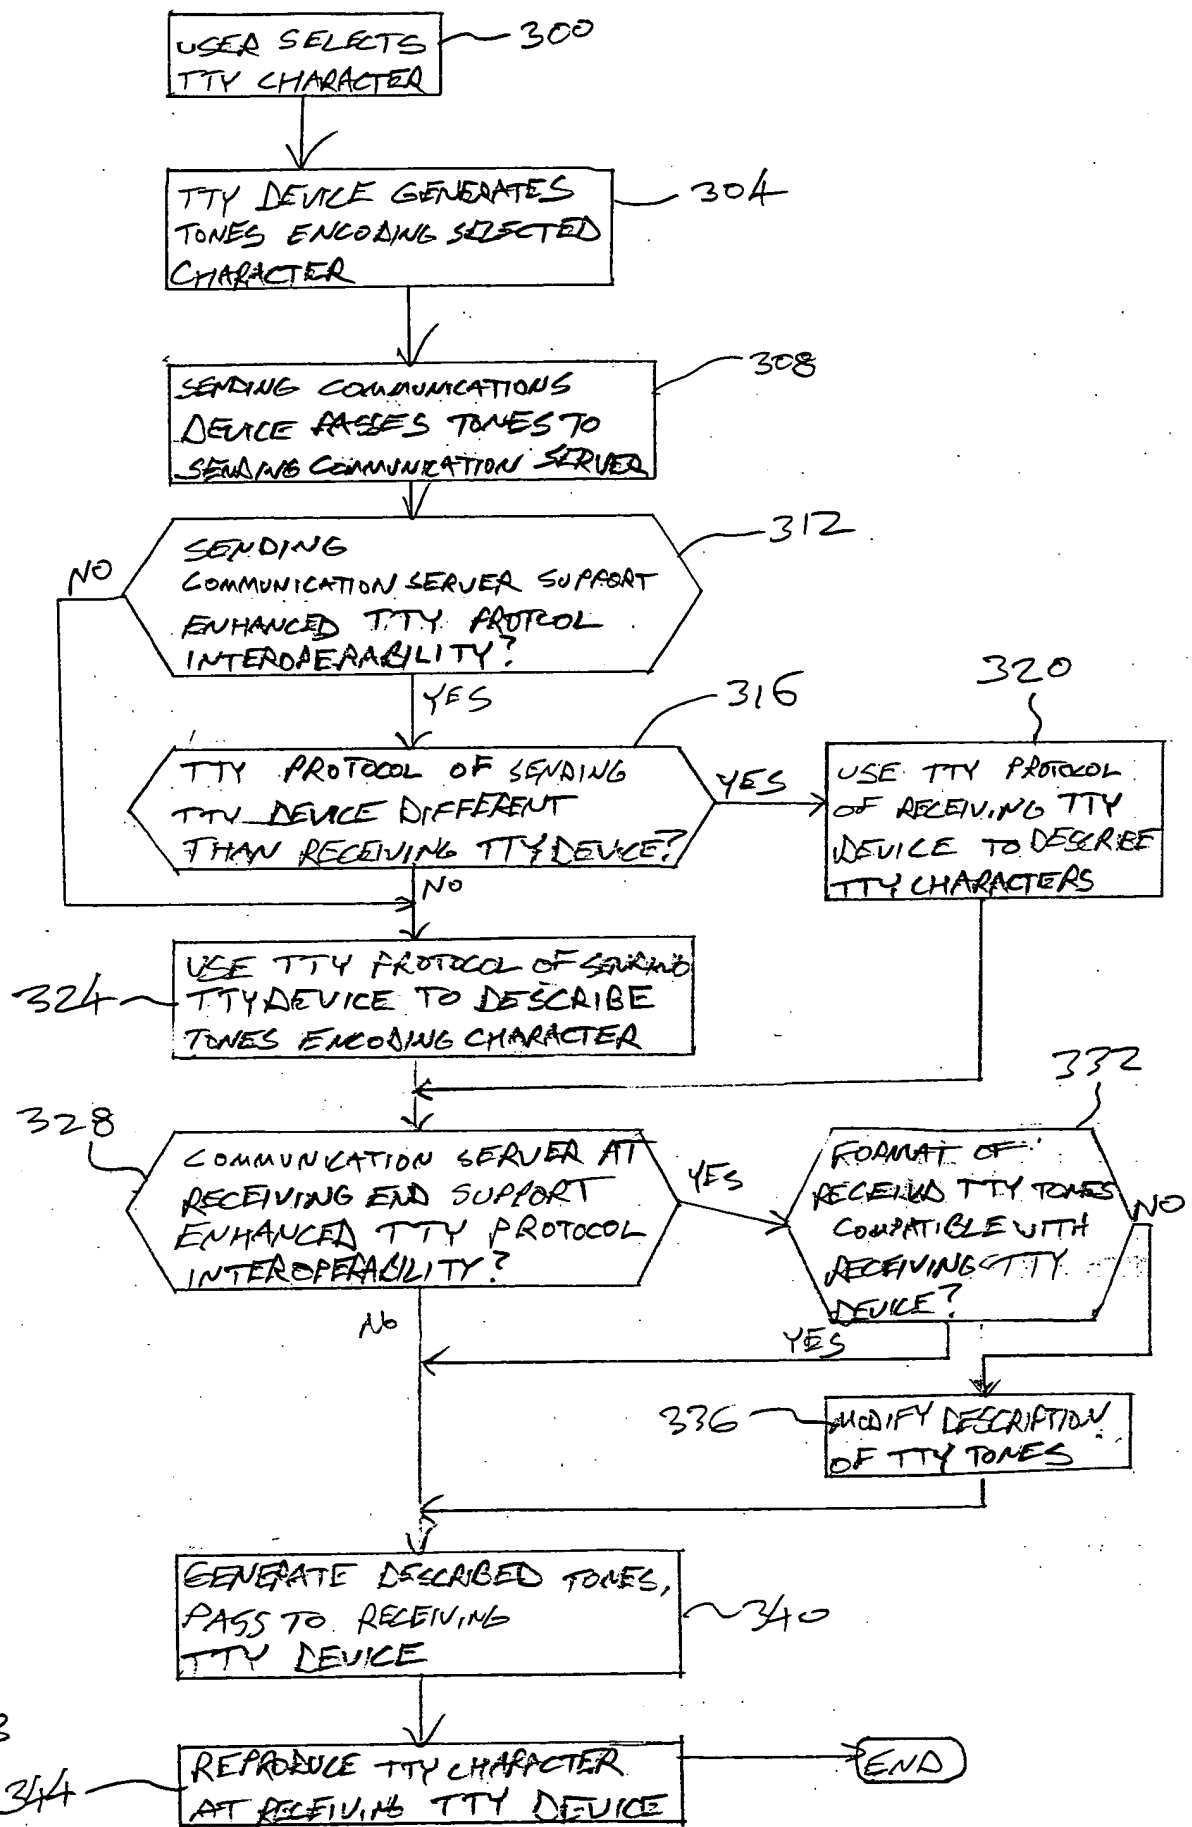 USER SELECTS
TTY CHARACTER
300
TTY DEVICE GENERATES
TONES ENCODING SELECTED
CHARACTER
304
SENDING COMMUNICATIONS
DEVICE PASSES TONES TO
SENDING COMMUNICATION SERVER
308
SENDING
COMMUNICATION SERVER SUPPORT
ENHANCED TTY PROTOCOL
INTEROPERABILITY?
312
NO
YES
TTY PROTOCOL OF SENDING
TTY DEVICE DIFFERENT
THAN RECEIVING TTY DEVICE?
316
YES
NO
320
USE TTY PROTOCOL
OF RECEIVING TTY
DEVICE TO DESCRIBE
TTY CHARACTERS
USE TTY PROTOCOL OF SENDING
TTY DEVICE TO DESCRIBE
TONES ENCODING CHARACTER
324
328
COMMUNICATION SERVER AT
RECEIVING END SUPPORT
ENHANCED TTY PROTOCOL
INTEROPERABILITY?
YES
NO
332
FORMAT OF
RECEIVED TTY TONES
COMPATIBLE WITH
RECEIVING TTY
DEVICE?
NO
YES
336
MODIFY DESCRIPTION
OF TTY TONES
GENERATE DESCRIBED TONES,
PASS TO RECEIVING
TTY DEVICE
340
3
344
REPRODUCE TTY CHARACTER
AT RECEIVING TTY DEVICE
END